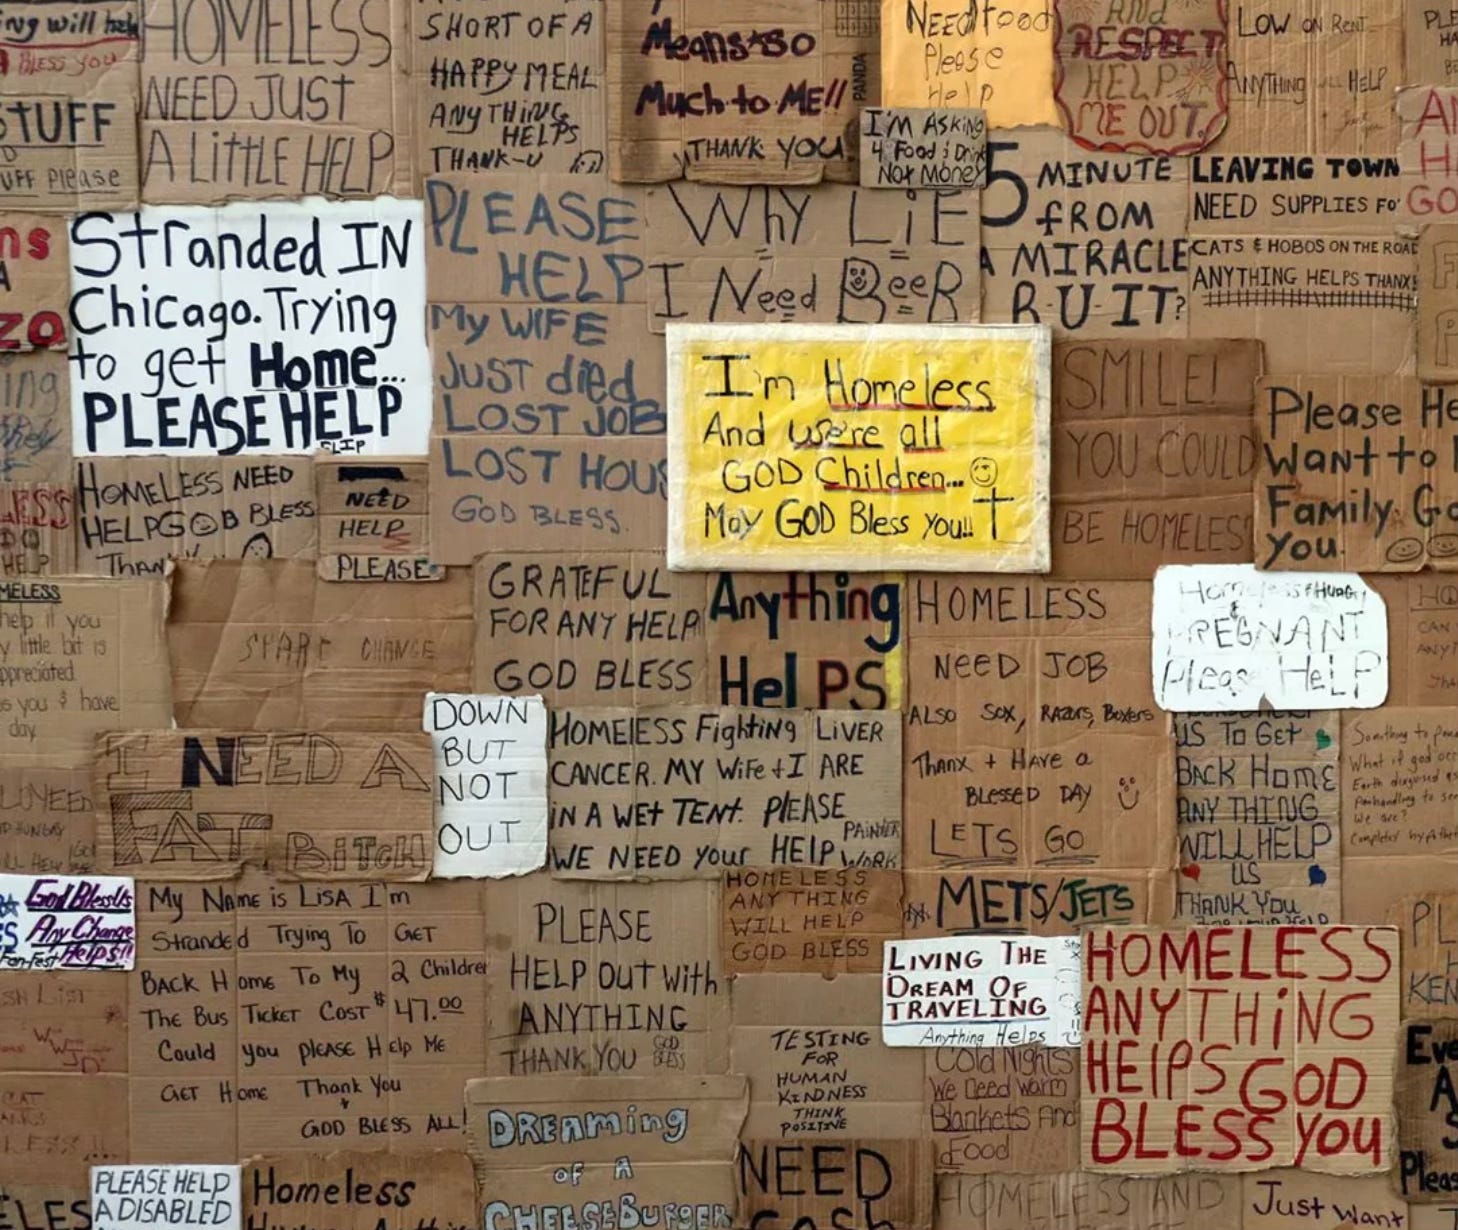 HOMELESS
NEED JUST
A LITTLE HELP
SHORT OF A
HAPPY MEAL
ANYTHING
HELPS
THANK-U
Means so
Much to ME!!
THANK YOU
PANDA
Need food
Please
Help
I'M ASKING
4 Food & Drink
Not Money
AND
RESPECT
HELP
ME OUT.
LOW ON RENT
ANYTHING WILL HELP
BLESS YOU
STUFF
UFF Please
Stranded IN
Chicago. Trying
to get Home...
PLEASE HELP
SLIP
PLEASE
HELP
My WIFE
JUST died
LOST JOB
LOST HOUS
GOD BLESS.
WHY LiE
I Need BeeR
5 MINUTE
FROM
A MIRACLE
R-U-IT?
LEAVING TOWN
NEED SUPPLIES FO
CATS & HOBOS ON THE ROAD
ANYTHING HELPS THANX!
I'm Homeless
And we're all
GOD Children...
May GOD Bless you!!
SMILE!
YOU COULD
BE HOMELESS
Please He
Want to
Family. Go
you.
HOMELESS NEED
HELP GOD BLESS
Thank
NEED
HELP
PLEASE
MELESS
help if you
little bit is
ppreciated.
s you & have
day
SPARE CHANGE
GRATEFUL
FOR ANY HELP
GOD BLESS
Anything
HelPS
HOMELESS
NEED JOB
ALSO SOX, RAZORS, BOXERS
Thanx + Have a
Blessed DAY
LETS GO
METS/JETS
Homeless & HUNGRY
&
PREGNANT
Please HeLP
US To GeT
BACK Home
ANY THING
WILL HELP
US
THANK YOU
Something to
What if god
Earth disguised
Panhandling to
We are?
I NEED A
FAT BiTCH
DOWN
BUT
NOT
OUT
HOMElESS Fighting LIVER
CANCER. MY WiFe + I ARE
iN A WEt TENT. PLEASE
WE NEED your HELP
PAINTER
WORK
God Bless Us
Any Change
Helps!!
Fan-Fest
My Name is LiSA I'm
Stranded Trying To GET
BACK Home To My 2 Children
The Bus Ticket Cost $47.00
Could you pleASE Help Me
GET Home Thank You
+
GOD BLESS ALL!
PLEASE
HELP OUT With
ANYTHING
THANK YOU GOD BLESS
HOMELESS
ANYTHING
WILL HELP
GOD BLESS
LIVING THE
DREAM OF
TRAVELING
Anything Helps
HOMELESS
ANYTHiNG
HElPS GOD
BLESS YOU
TESTING
FOR
HUMAN
KINDNESS
THINK
POSITIVE
Cold Nights
We need warm
Blankets And
Food
DREAMING
OF A
CHEESEBURGER
NEED
Cash
PLEASE HELP
A DISABLED
Homeless
HOMELESS AND
Just Want